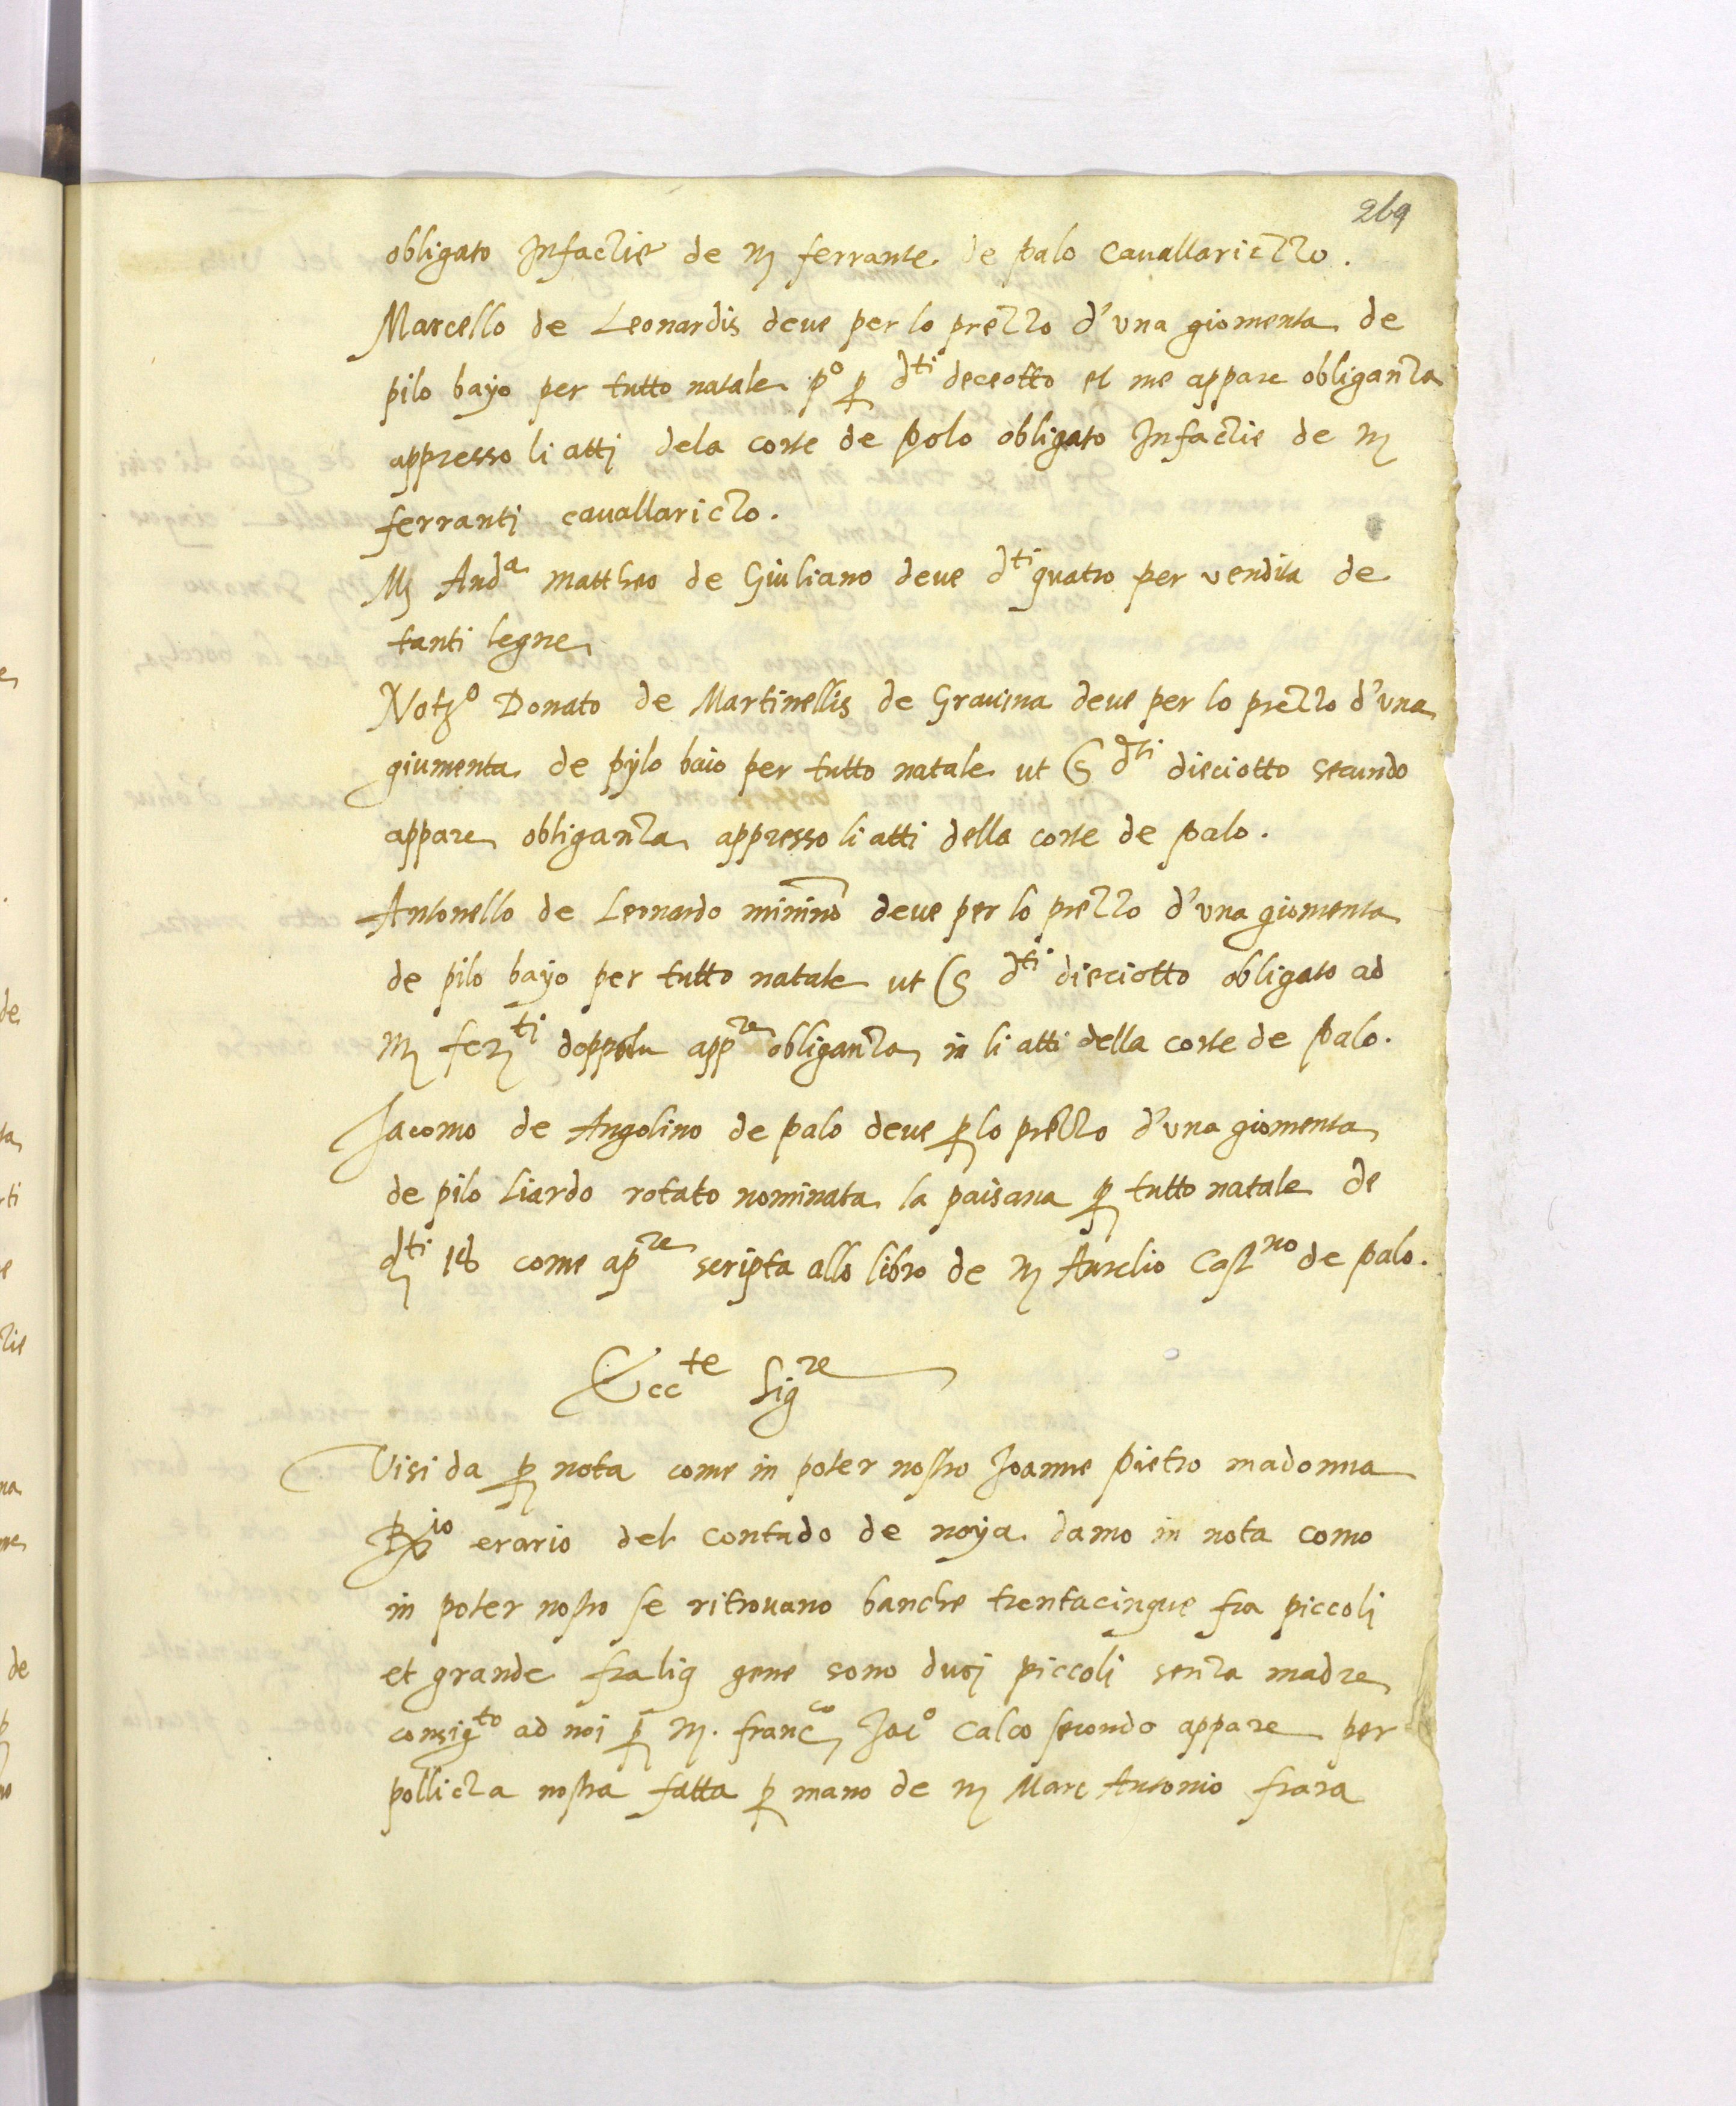 269
obligato Infaczie de m ferrante de palo Cavallariczo.
Marcello de Leonardis deve per lo prezzo d'una giomenta de
pilo bayo per tutto natale p.º p dti deceotto et me appare obliganza
appresso li attj dela corte de polo obligato Infaczie de m
ferrantj cavallariczo.
Ms Anda Mattheo de Giuliano deve dti quatro per vendita de
tanti legne
Notro Donato de Martinellis de Gravina deve per lo prezzo d'una
giumenta de pylo baio per tutto natale ut s dti dieciotto secundo
appare obliganza appresso li atti della corte de palo.
Antonello de Leonardo minino deve per lo prezzo d'una giomenta
de pilo bayo per tutto natale ut s dti dieciotto obligato ad
m ferti appre obliganza in li atti della corte de palo.
Jacomo de Angolino de palo deve p lo prezzo d'una giomenta
de pilo Liardo rotato nominata la paisana p tutto natale de
dti 18 come apre scripta allo libro de m Aurelio Castno de palo.
Eccte Sigre
Visi da p nota come in poter nostro Joanne Pietro madonna
erario del Contado de noya damo in nota como
in poter nostro se ritrovano banche trentacinque fra piccoli
et grande fraliq gene sono ducj piccoli senza madre
consigto ad noi p m. francco Jaco Calco secondo appare per
pollicza nostra fatta p mano de m Marc Antonio frara